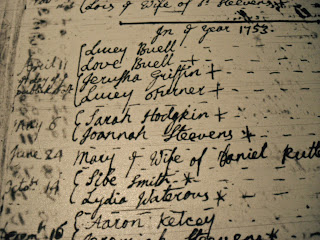 Lois y Wife of Stevens
In y Year 1753.
April 11 { Lucey Buell
Love Buell +
Jerusha Griffin +
Lucey Turner +
May 8 { Sarah Hodgkin +
Joannah Steevens +
June 24 Mary y Wife of Daniel
Octobr 14 { Sibe Smith *
Lydia Waterous *
16 { Aaron Kelcey
Stevens